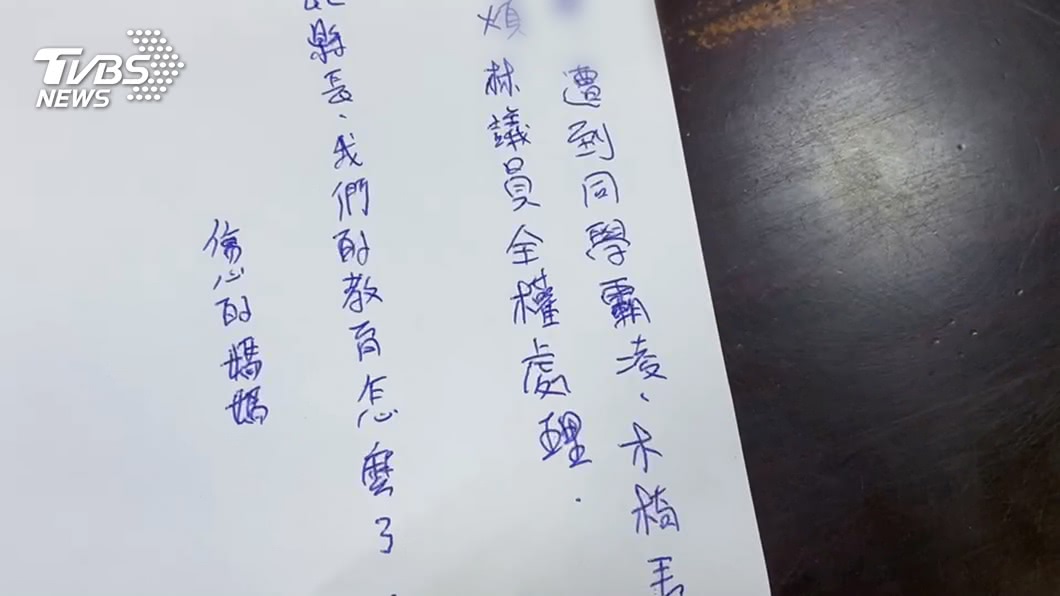 TVBS
NEWS
遭到同學霸凌、木椅
煩林議員全權處理.
縣長、我們的教育怎麼了
傷心的媽媽